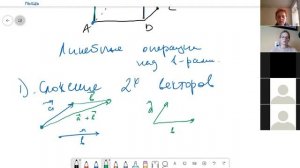 A
D
Линейные операции
над в-рами.
1). Сложение 2х векторов
a
b
a + b
a
b
a
b